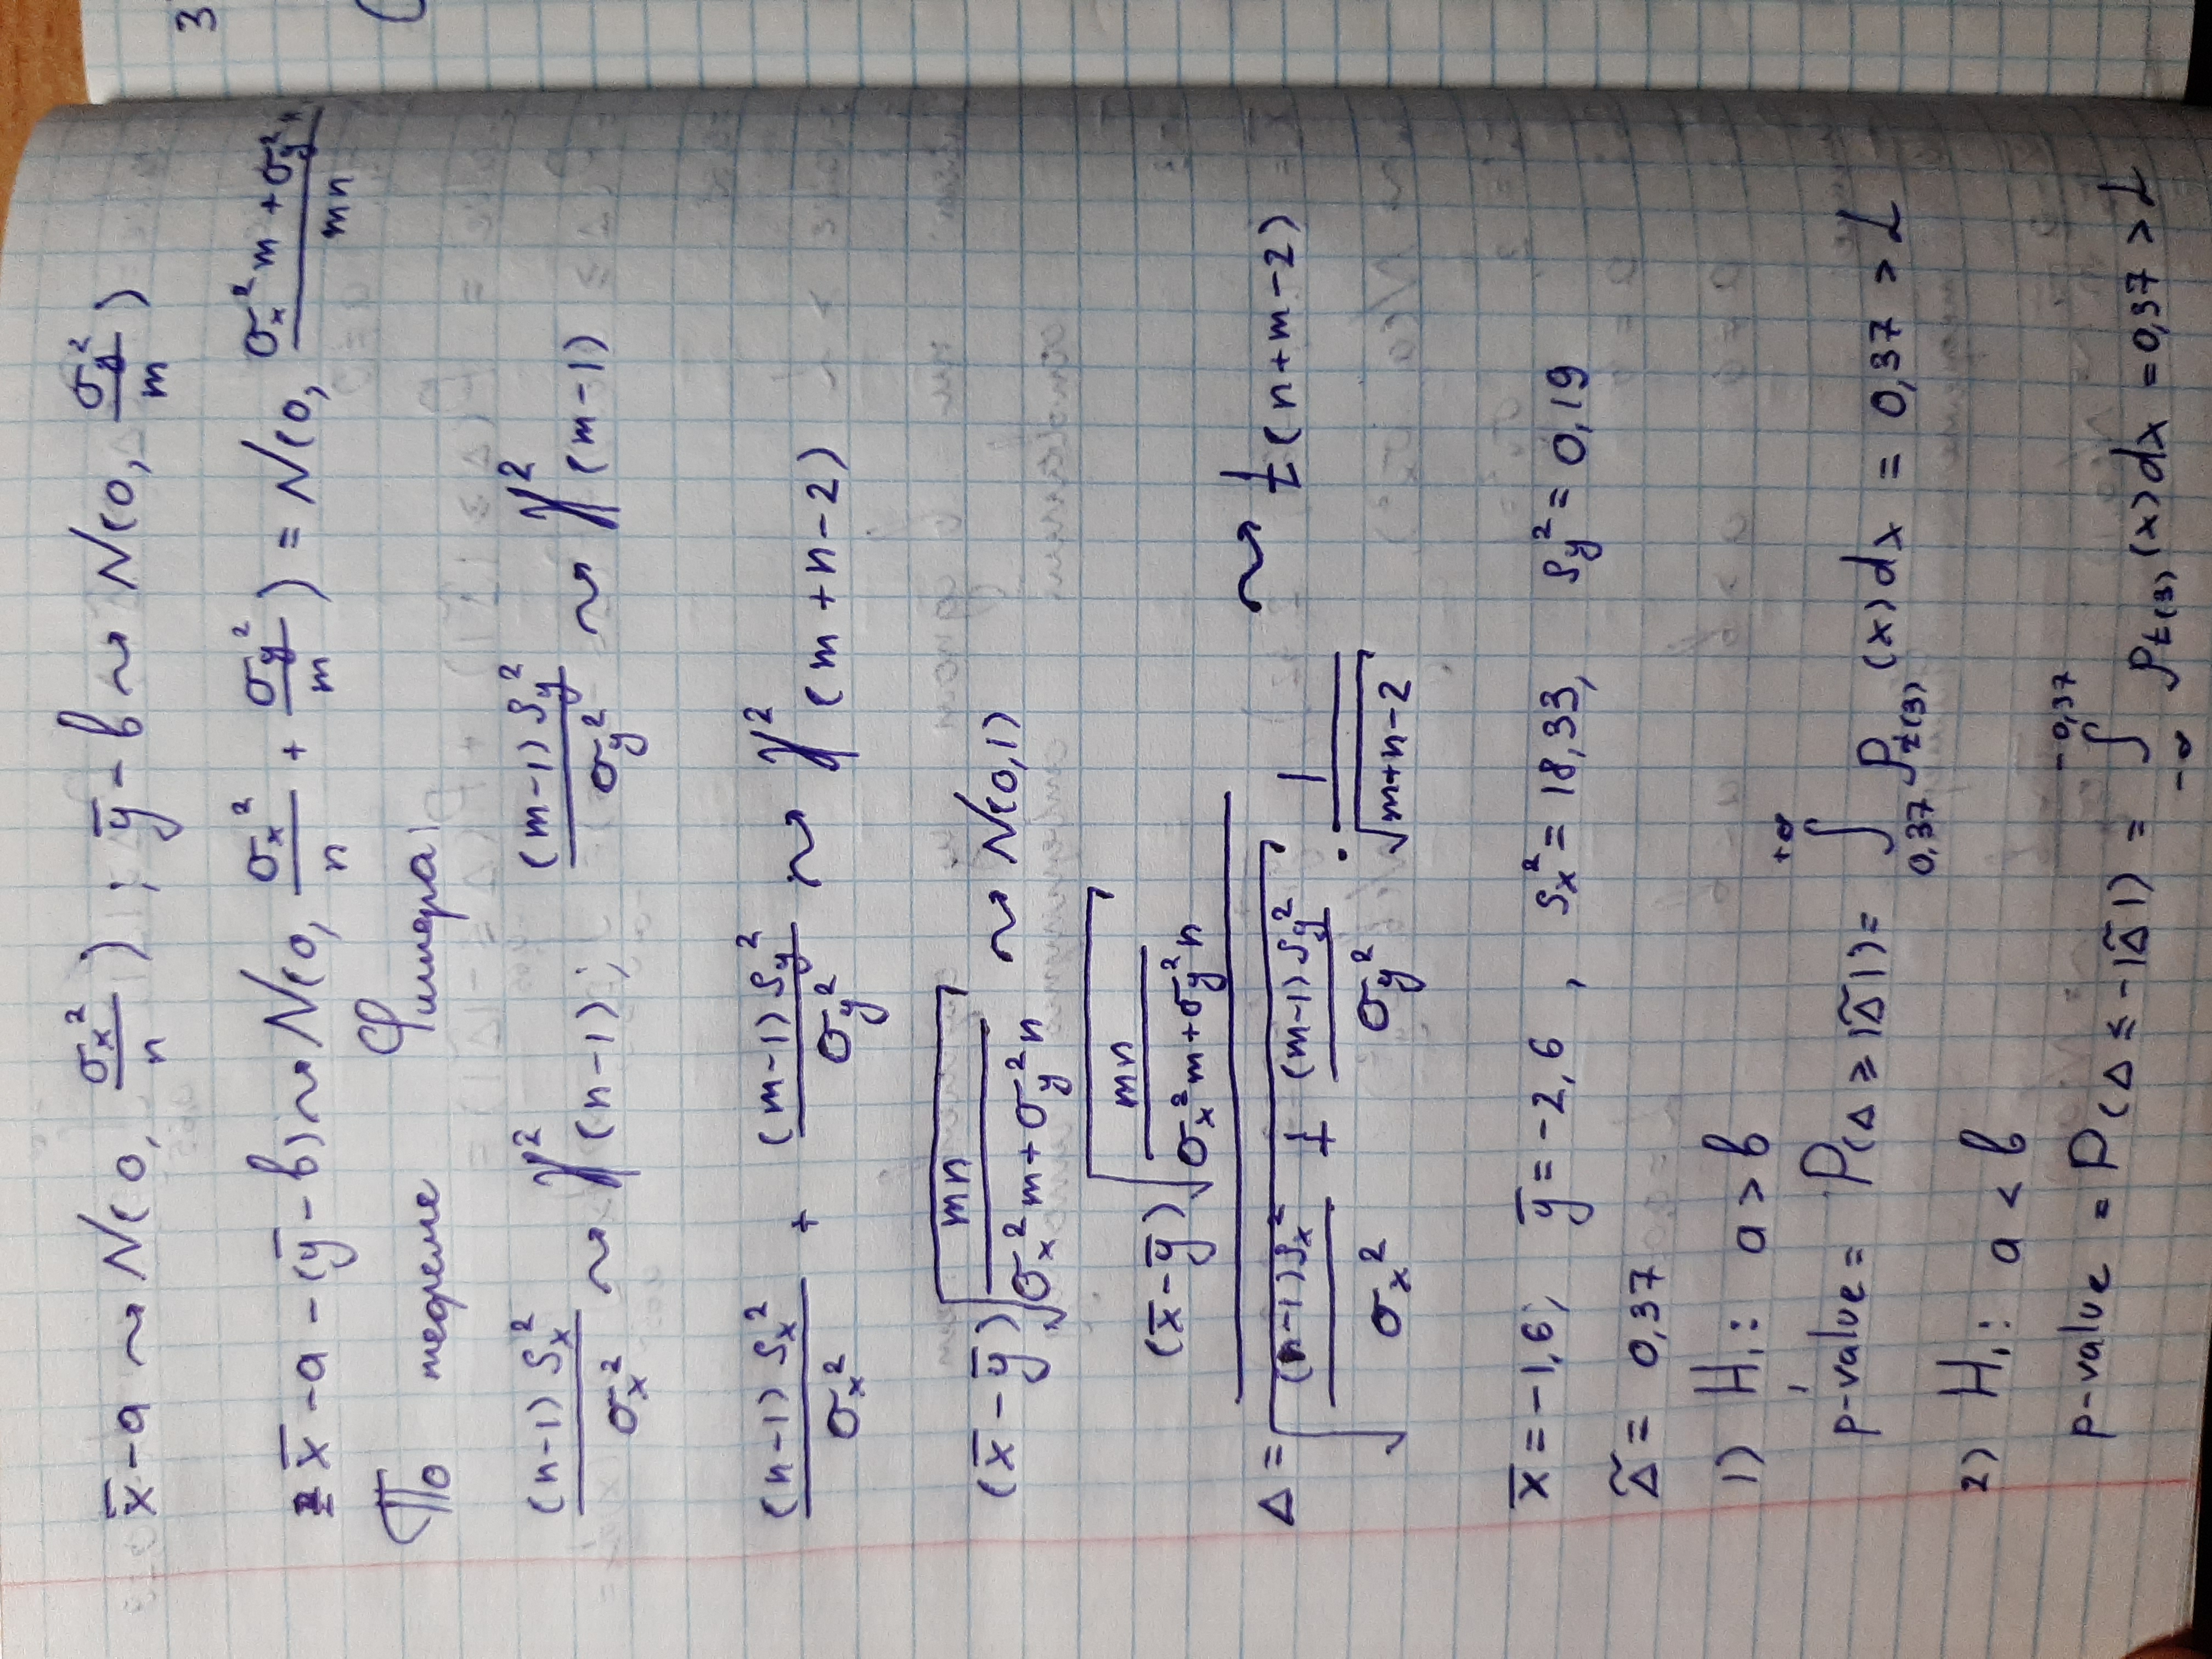 x̄ - a ⇝ N(0, σx²/n) ; ȳ - b ⇝ N(0, σy²/m)
x̄ - a - (ȳ - b) ⇝ N(0, σx²/n + σy²/m) = N(0, (σx² m + σy² n)/mn
По теореме Фишера:
(n-1) Sx²/σx² ⇝ χ²(n-1) ; (m-1) Sy²/σy² ⇝ χ²(m-1)
(n-1) Sx²/σx² + (m-1) Sy²/σy² ⇝ χ²(m+n-2)
(x̄ - ȳ) √(mn/(σx² m + σy² n)) ⇝ N(0,1)
Δ = (x̄ - ȳ) √(mn/(σx² m + σy² n)) / (√((n-1) Sx²/σx² + (m-1) Sy²/σy²) · 1/√(m+n-2)) ⇝ t(n+m-2)
x̄ = -1,6; ȳ = -2,6 , Sx² = 18,33, Sy² = 0,19
Δ̃ = 0,37
1) H₁: a > b
p-value = P(Δ ≥ |Δ̃|) = ∫_{0,37}^{+∞} ρt(3) (x) dx = 0,37 > α
2) H₁: a < b
p-value = P(Δ ≤ -|Δ̃|) = ∫_{-∞}^{-0,37} ρt(3) (x) dx = 0,37 > α
3